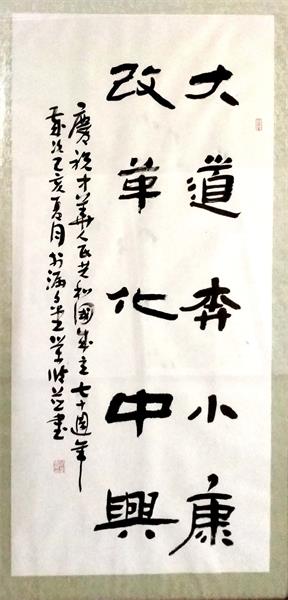 大道奔小康
改革化中興
慶祝中華人民共和國成立七十週年
歲次己亥夏月於 書